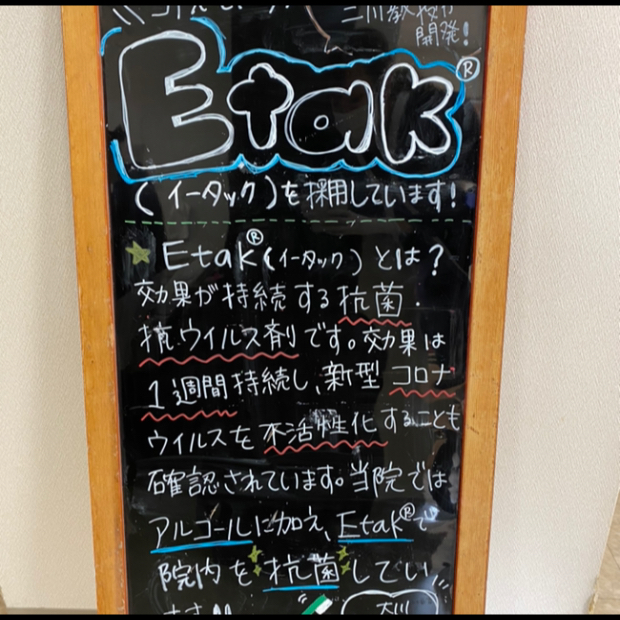 開発!
Etak®
(イータック)を採用しています!
Etak®(イータック)とは?
効果が持続する抗菌・
抗ウイルス剤です。効果は
1週間持続し、新型コロナ
ウイルスを不活性化することも
確認されています。当院では
アルコールに加え、Etak®で
院内を抗菌してい